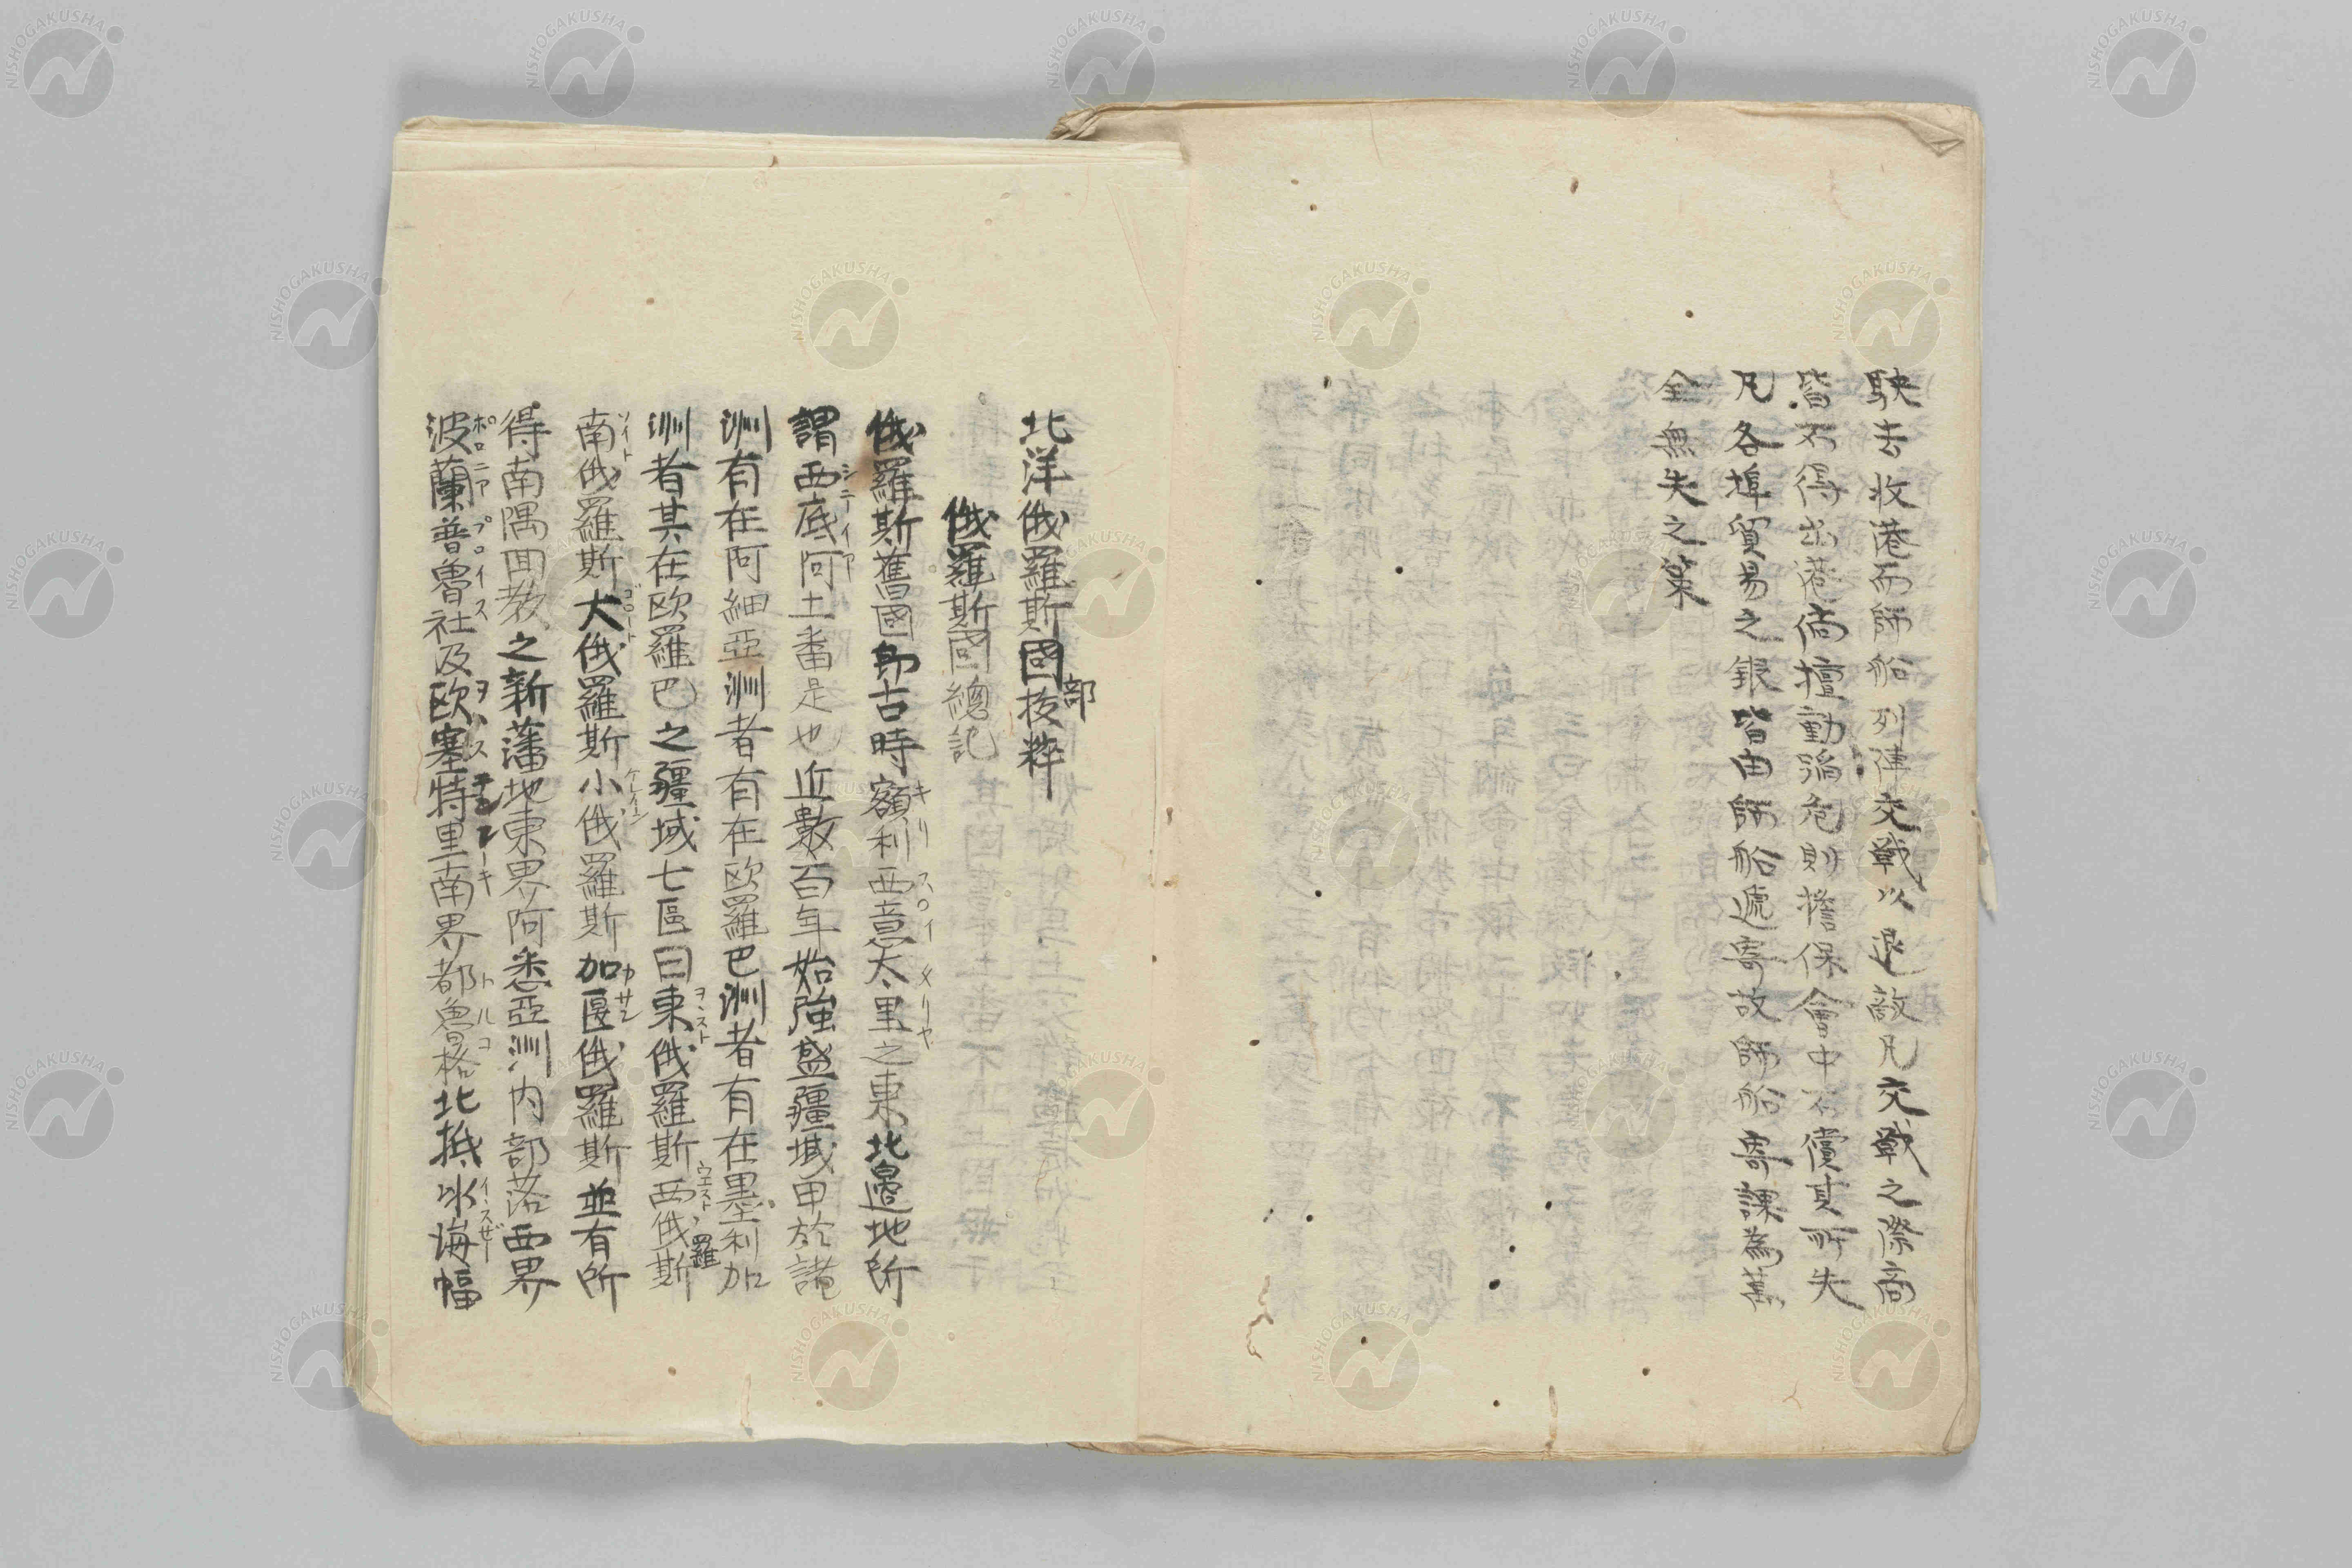 駛去收港而師船列陣交戰以退敵凡交戰之際商
皆不得出港倘擅動蹈危則擔保會中不償其所失
凡各埠貿易之銀皆由師船遞寄故師船寄課為萬
全無失之策
北洋俄羅斯國部抜粹
俄羅斯國總記
俄羅斯舊國即古時額利西意大里之東北邊地所
謂西底阿土番是也近數百年始強盛疆域甲於諸
洲有在阿細亞洲者有在欧羅巴洲者有在墨利加
洲者其在欧羅巴之疆域七區曰東俄羅斯西俄羅斯
南俄羅斯大俄羅斯小俄羅斯加匽俄羅斯並有所
得南隅回教之新藩地東界阿悉亞洲内部落西界
波蘭普魯社及欧塞特里南界都魯格北抵冰海幅
NISHOGAKUSHA